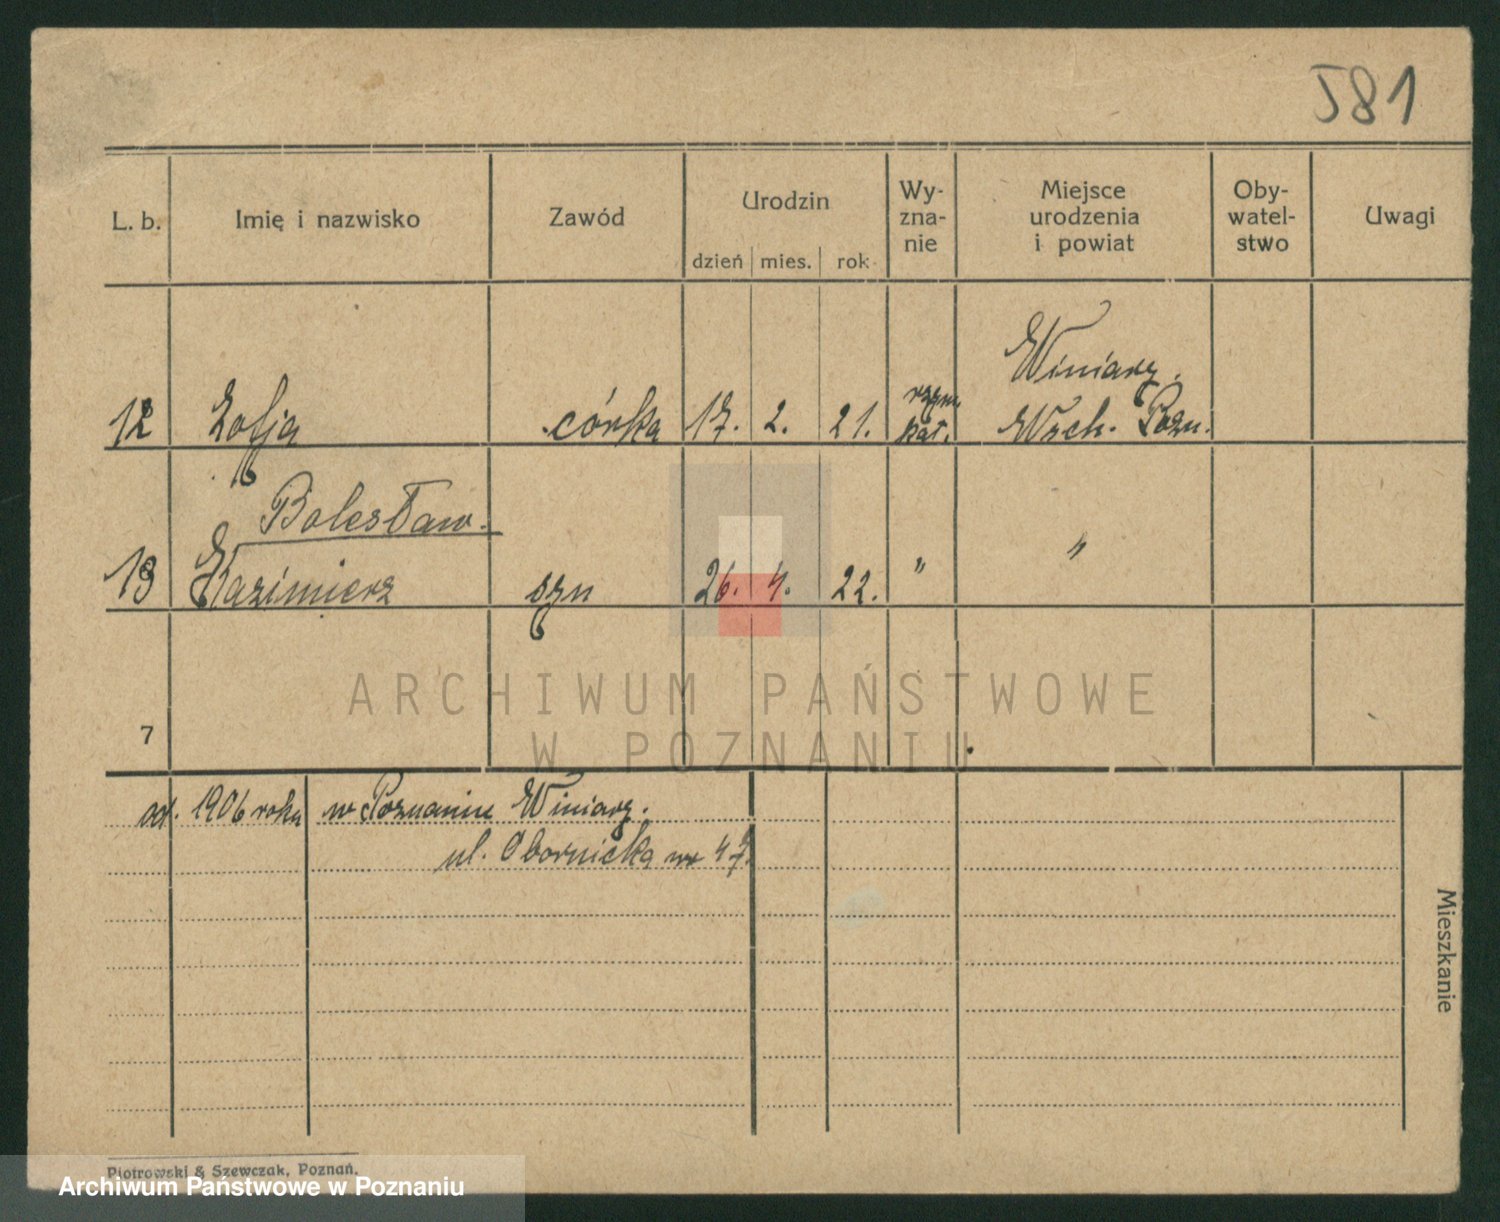 581
L. b. Imię i nazwisko Zawód Urodzin Wy-zna-nie Miejsce urodzenia i powiat Oby-watel-stwo Uwagi
dzień mies. rok
Winiary.
12 Zofja córka 17. 2. 21. rzym. kat. Wsch. Pozn.
Bolesław
13 Kazimierz syn 26. 4. 22. " "
ARCHIWUM PAŃSTWOWE
W POZNANIU
7
od. 1906 roku w Poznaniu Winiary.
ul. Obornicka nr 47.
Mieszkanie
Piotrowski & Szewczak, Poznań.
Archiwum Państwowe w Poznaniu